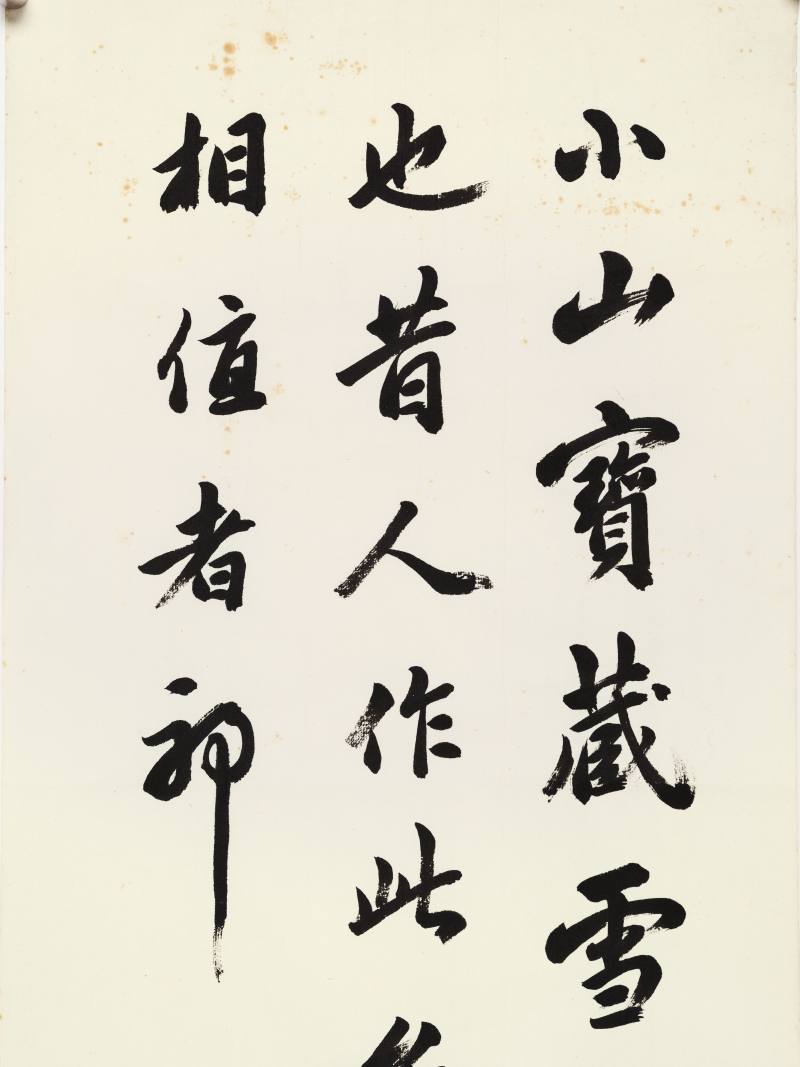 小山寶藏雪
也昔人作此
相值者耶